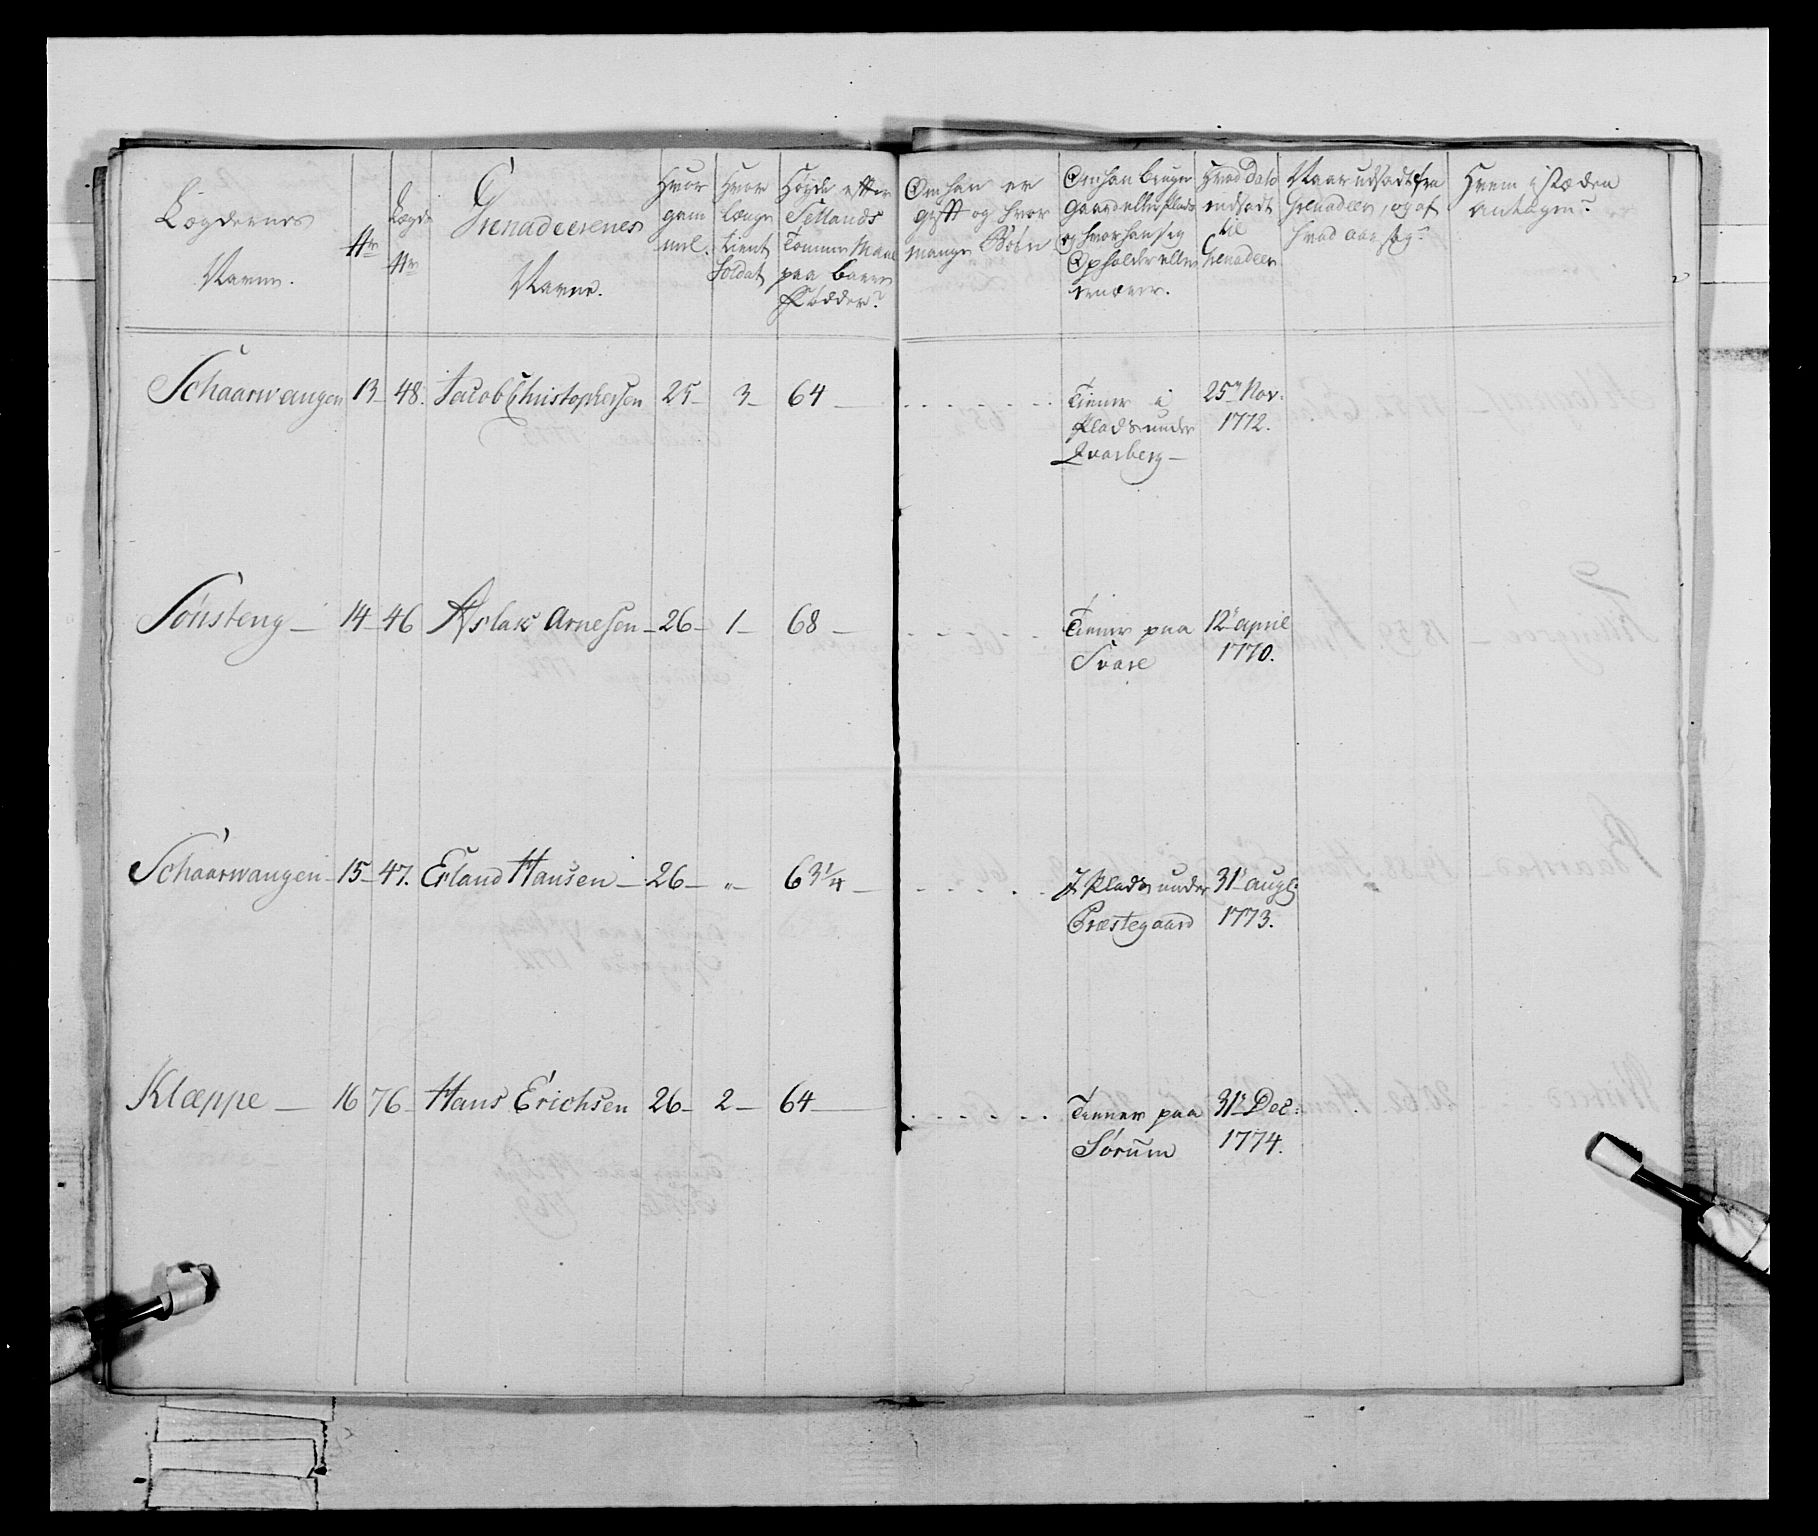 Lægdernes
Navne.
Nr
Lægde
Nr
Grenadeerenes
Navne.
Hvor
gam
mel.
Hvor
længe
tient
Soldat
Høyde efter
Sellands
Tomme Maal
paa bare
Fødder?
Om han er
gift og hvor
mange Børn
Om han bruger
Gaard eller Plads
og hvor han sig
Opholder eller
tienner.
Hvad Dato
indsadt
til
Grenadeer
Naar udsadt fra
Grenadeer, og af
hvad aarsag?
Hvem i stæden
antagen?
Schaarwangen 13 48. Jacob Christophersen 25 3 64
Tiener i
Plads under
Qvarberg
25de Nov:
1772.
Sønsteng 14 46 Aslak Arnesen 26 1 68
Tiener paa
Svare
12te april
1770.
Schaarwangen 15 47. Erland Hansen 26 " 63 1/4
I Plads under
Præstegaard
31te augl:
1773.
Klæppe 16 76 Hans Erichsen 26 2 64
Tienner paa
Sørum
31te Dec:
1774.